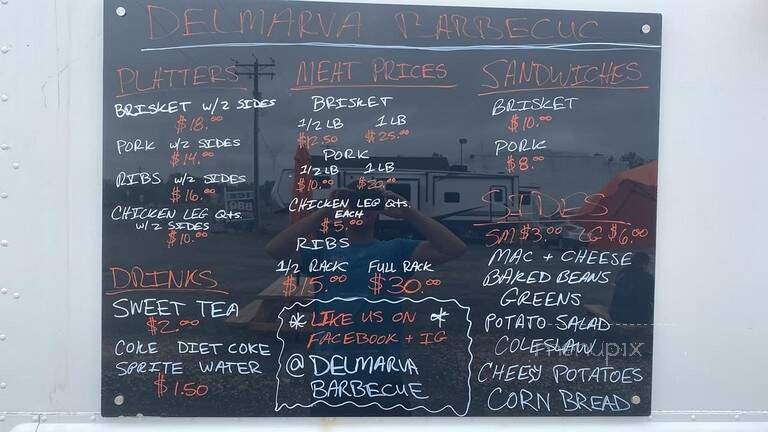 DELMARVA BARBECUE
PLATTERS
BRISKET W/2 SIDES
$18.00
PORK W/2 SIDES
$14.00
RIBS W/2 SIDES
$16.00
CHICKEN LEG QTS.
W/2 SIDES
$10.00
DRINKS
SWEET TEA
$2.00
COKE DIET COKE
SPRITE WATER
$1.50
MEAT PRICES
BRISKET
1/2 LB 1 LB
$12.50 $25.00
PORK
1/2 LB 1 LB
$10.00 $20.00
CHICKEN LEG QTS.
EACH
$5.00
RIBS
1/2 RACK FULL RACK
$15.00 $30.00
* LIKE US ON *
FACEBOOK + IG
@DELMARVA
BARBECUE
SANDWICHES
BRISKET
$10.00
PORK
$8.00
SIDES
SM $3.00 LG $6.00
MAC + CHEESE
BAKED BEANS
GREENS
POTATO-SALAD
COLESLAW
CHEESY POTATOES
CORN BREAD
menupix